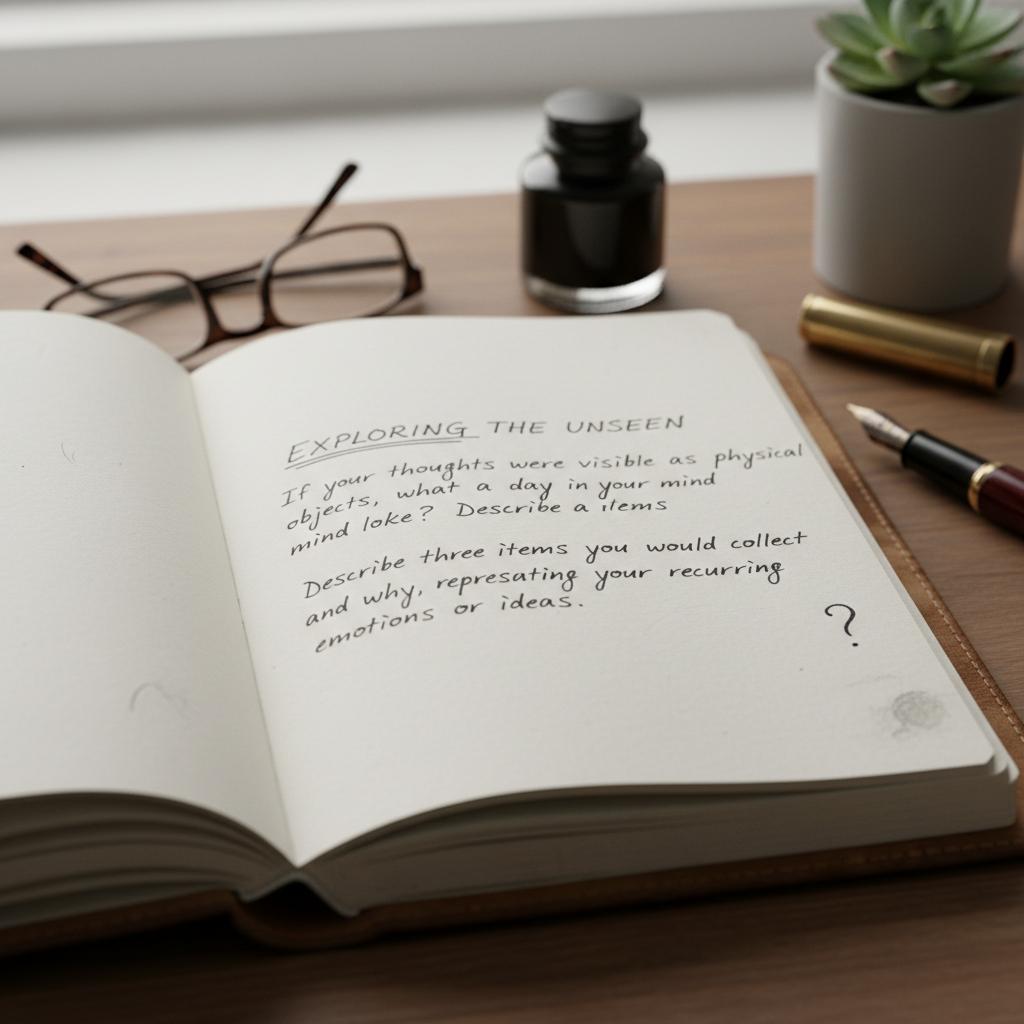 EXPLORING THE UNSEEN
If your thoughts were visible as physical
objects, what a day in your mind
mind loke? Describe a items
Describe three items you would collect
and why, represating your recurring
emotions or ideas.
?